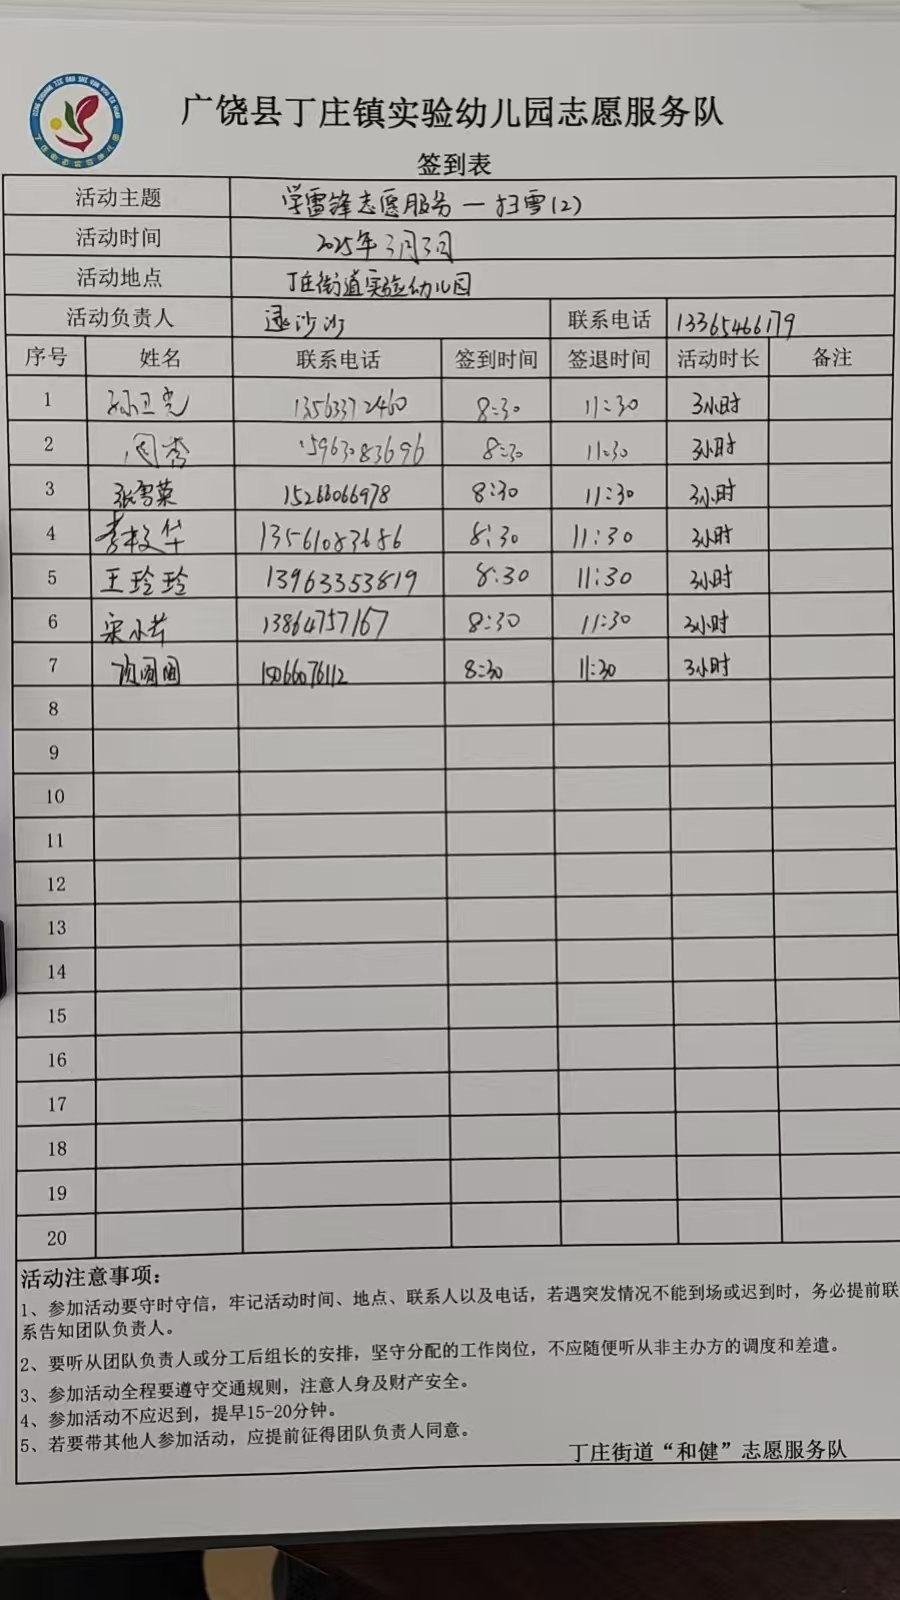 广饶县丁庄镇实验幼儿园志愿服务队
签到表
活动主题 学雷锋志愿服务—扫雪(2)
活动时间 2025年3月3日
活动地点 丁庄街道实验幼儿园
活动负责人 逯沙沙 联系电话 13365466179
序号 姓名 联系电话 签到时间 签退时间 活动时长 备注
1 孙卫亮 13563372460 8:30 11:30 3小时
2 周秀 15963083696 8:30 11:30 3小时
3 张雪菜 15266066978 8:30 11:30 3小时
4 李校华 13561083686 8:30 11:30 3小时
5 王玲玲 13963353819 8:30 11:30 3小时
6 宋小芹 13864757167 8:30 11:30 3小时
7 圆圆 15066076112 8:30 11:30 3小时
8
9
10
11
12
13
14
15
16
17
18
19
20
活动注意事项:
1、参加活动要守时守信，牢记活动时间、地点、联系人以及电话，若遇突发情况不能到场或迟到时，务必提前联
系告知团队负责人。
2、要听从团队负责人或分工后组长的安排，坚守分配的工作岗位，不应随便听从非主办方的调度和差遣。
3、参加活动全程要遵守交通规则，注意人身及财产安全。
4、参加活动不应迟到，提早15-20分钟。
5、若要带其他人参加活动，应提前征得团队负责人同意。
丁庄街道“和健”志愿服务队